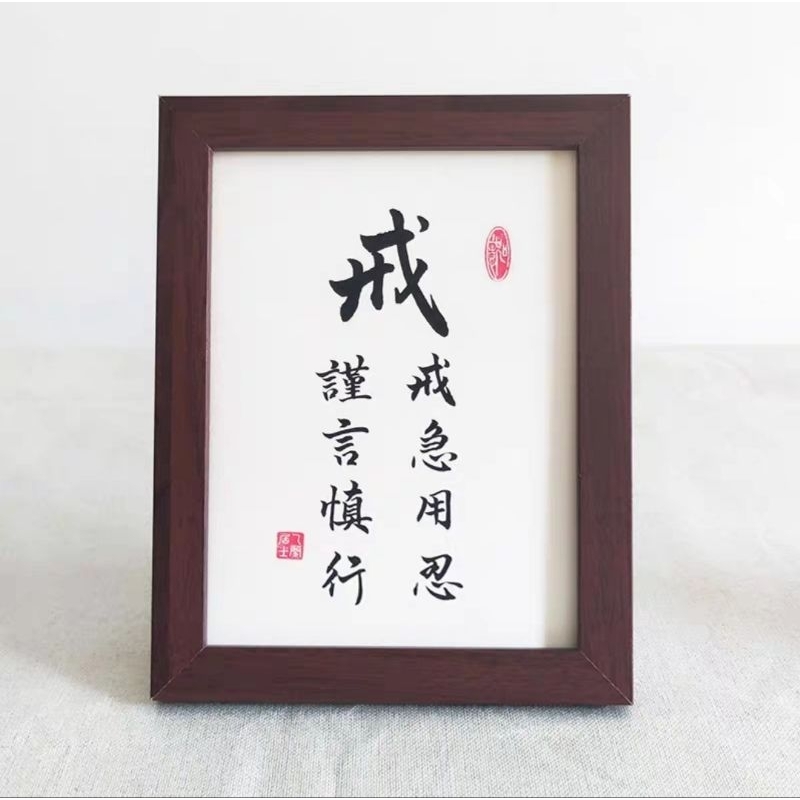 戒
戒急用忍
謹言慎行